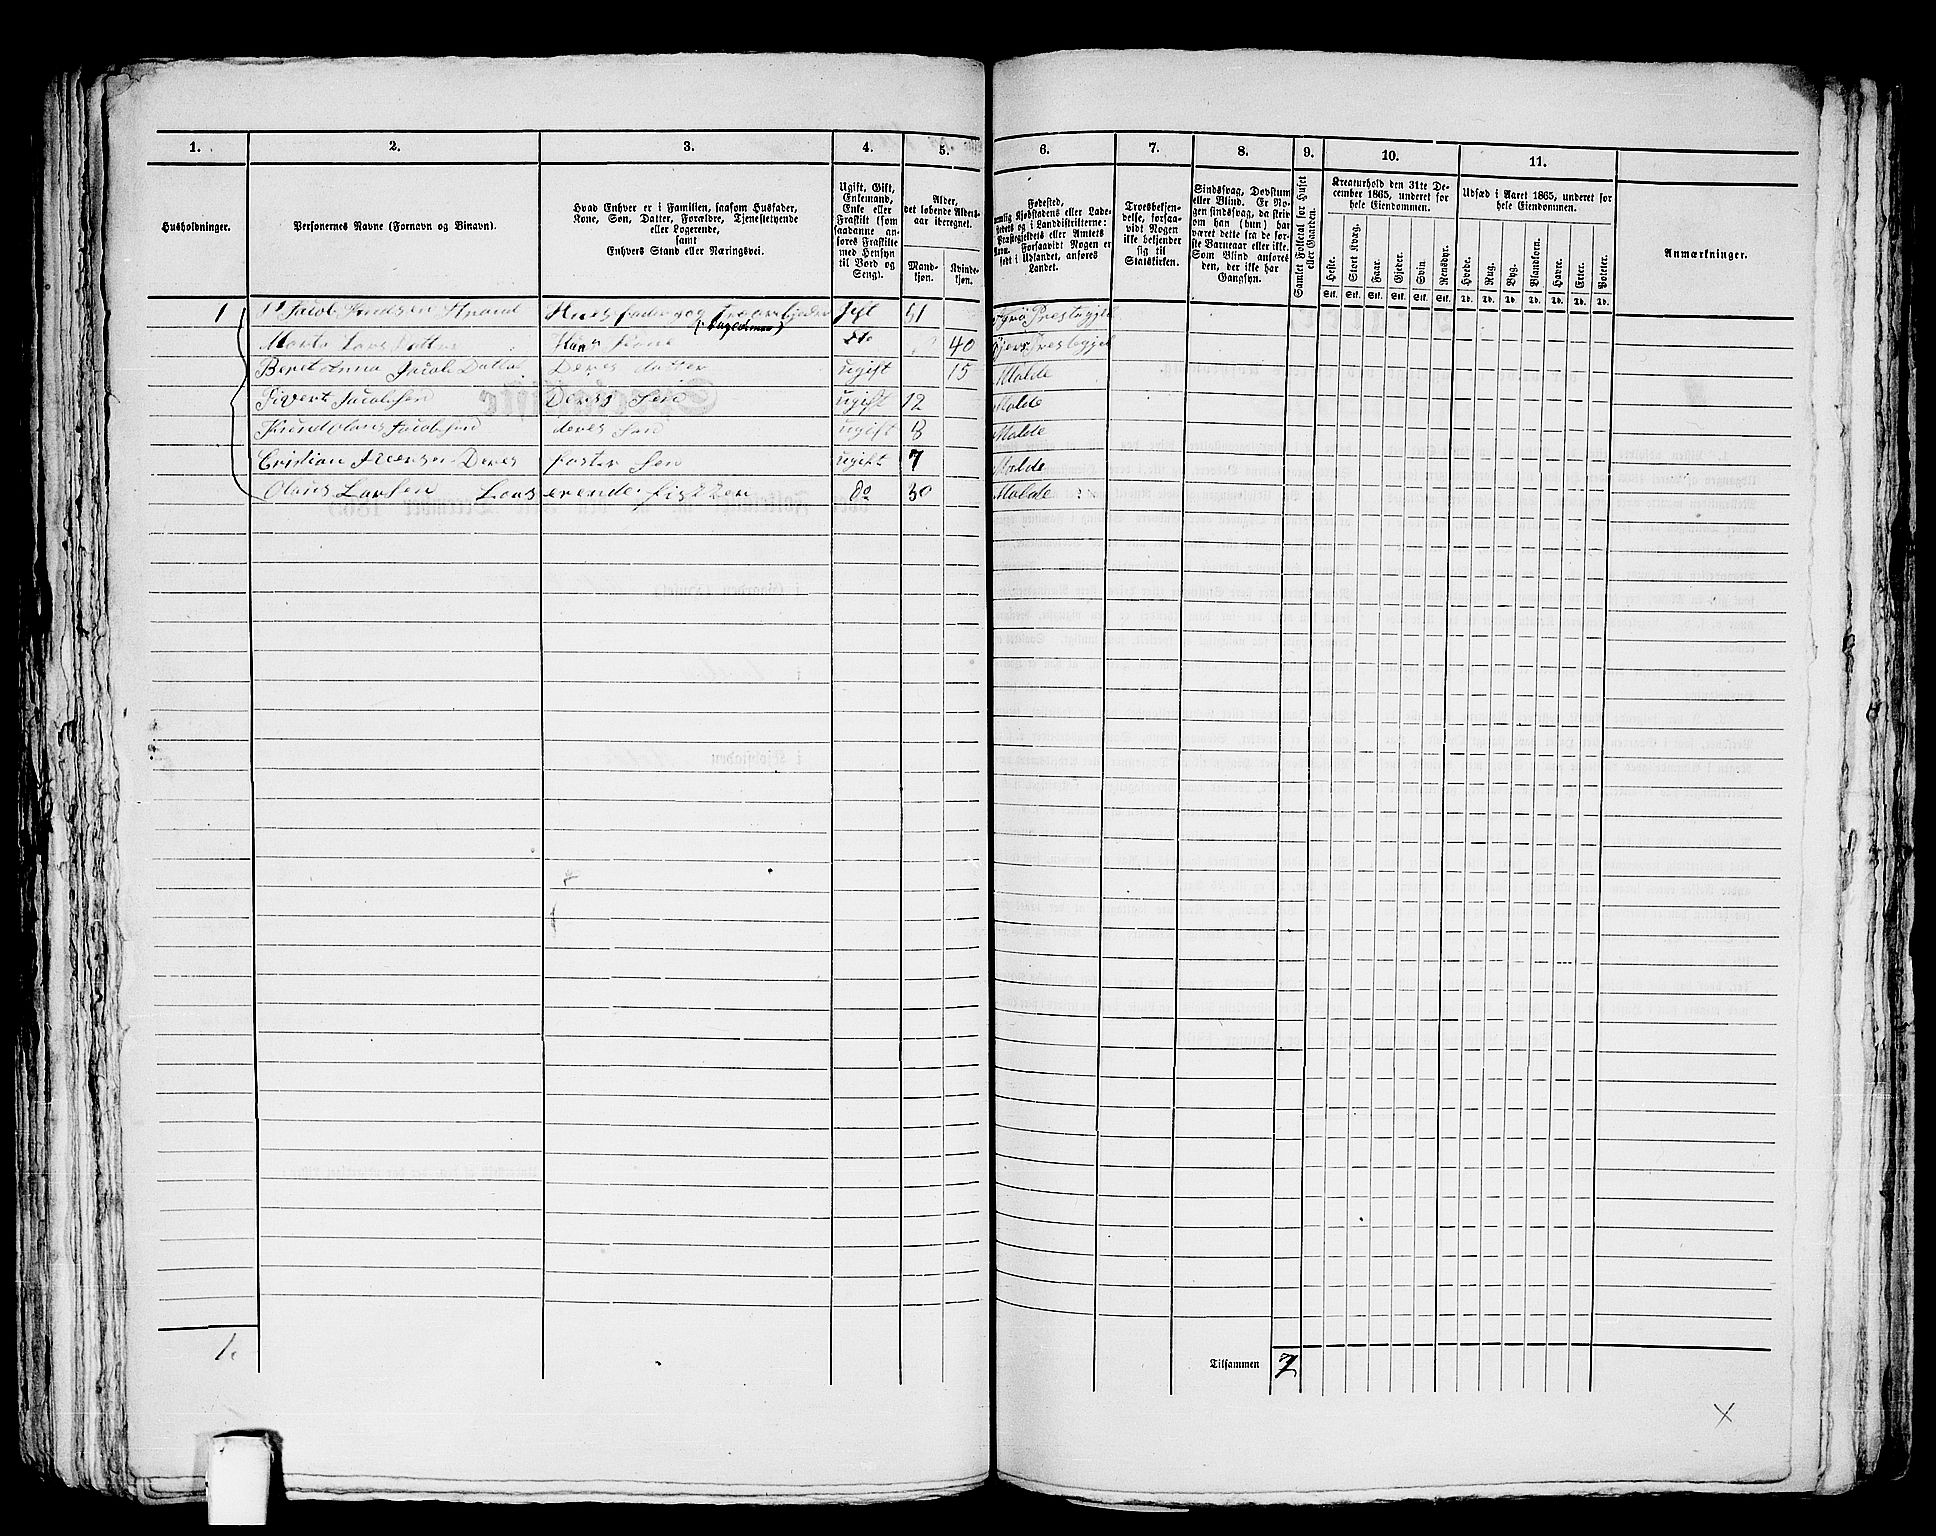 1. 2. 3. 4. 5. 6. 7. 8. 9. 10. 11.
Husholdninger.
Personernes Navne (Fornavn og Binavn).
Hvad Enhver er i Familien, saasom Husfader,
Kone, Søn, Datter, Forældre, Tjenestetyende
eller Logerende,
samt
Enhvers Stand eller Næringsvei.
Ugift, Gift,
Enkemand,
Enke eller
Fraskilt (som
saadanne an-
føres Fraskilte
med Hensyn
til Bord og
Seng).
Alder,
det løbende Alders-
aar iberegnet.
Mand-
kjøn.
Kvinde-
kjøn.
Fødested,
nemlig Kjøbstadens eller Lade-
stedets og i Landdistrikterne:
Præstegjeldets eller Amtets
Navn. Forsaavidt Nogen er
født i Udlandet, anføres
Landet.
Troesbekjen-
delse, forsaa-
vidt Nogen
ikke bekjender
sig til
Statskirken.
Sindssvag, Døvstum
eller Blind. Er No-
gen sindssvag, da skriv
om han (hun) har
været dette fra de før-
ste Barneaar eller ikke.
Som Blind anføres
den, der ikke har
Gangsyn.
Samlet Folketal for Huset
eller Gaarden.
Kreaturhold den 31te De-
cember 1865, underet for
hele Eiendommen.
Heste. Stort Kvæg. Faar. Gjeder. Svin. Rensdyr.
Stk. Stk. Stk. Stk. Stk. Stk.
Udsæd i Aaret 1865, underet for
hele Eiendommen.
Hvede. Rug. Byg. Blandkorn. Havre. Erter. Poteter.
Td. Td. Td. Td. Td. Td. Td.
Anmærkninger.
1 Jacob Knudsen Strand Huusfader og Gift 51 Prestegjel
40 Prestegjel
Beret Anna Jacobs Datter Deres datter ugift 15 Molde
Sivert Jacobsen Deres Søn ugift 12 Molde
Knud Jacobsen deres Søn ugift 8 Molde
Cristian Deres foster Søn ugift 7 Molde
Olaus Larsen Loos erende fisker do 30 Molde
1.
Tilsammen 7
X